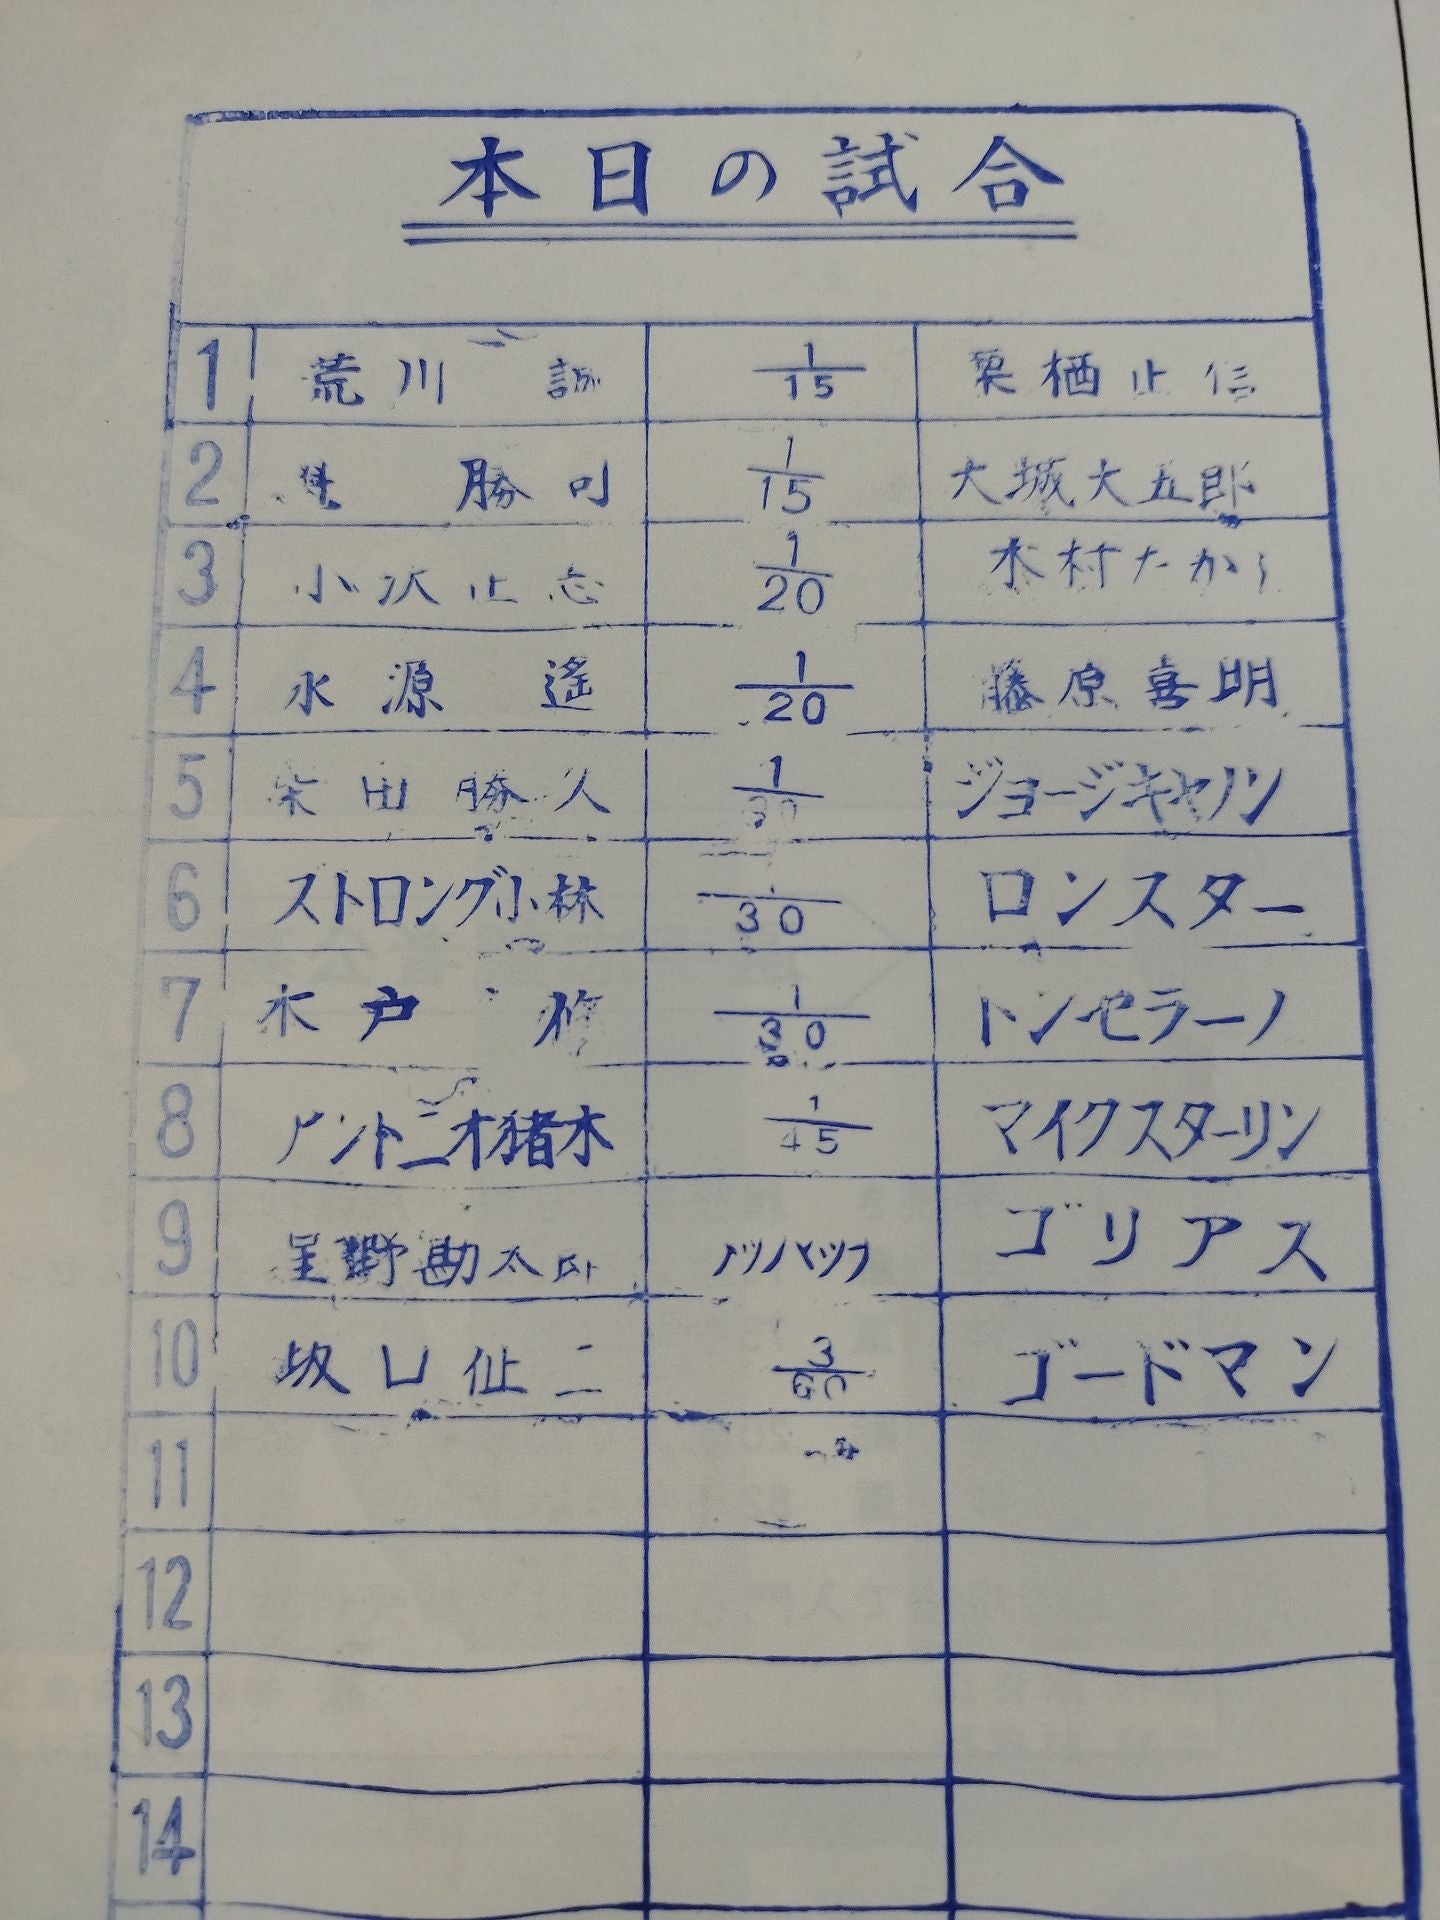 本日の試合
1 荒川 誠 1/15 栗栖正信
2 勝司 1/15 大城大五郎
3 小沢正志 1/20 木村たかし
4 永源 遙 1/20 藤原喜明
5 柴田勝久 1/30 ジョージキャノン
6 ストロング小林 1/30 ロンスター
7 木戸 修 1/30 トンセラーノ
8 アントニオ猪木 1/45 マイクスターリン
9 星野勘太郎 ゴリアス
10 坂口征二 3/60 ゴードマン
11
12
13
14